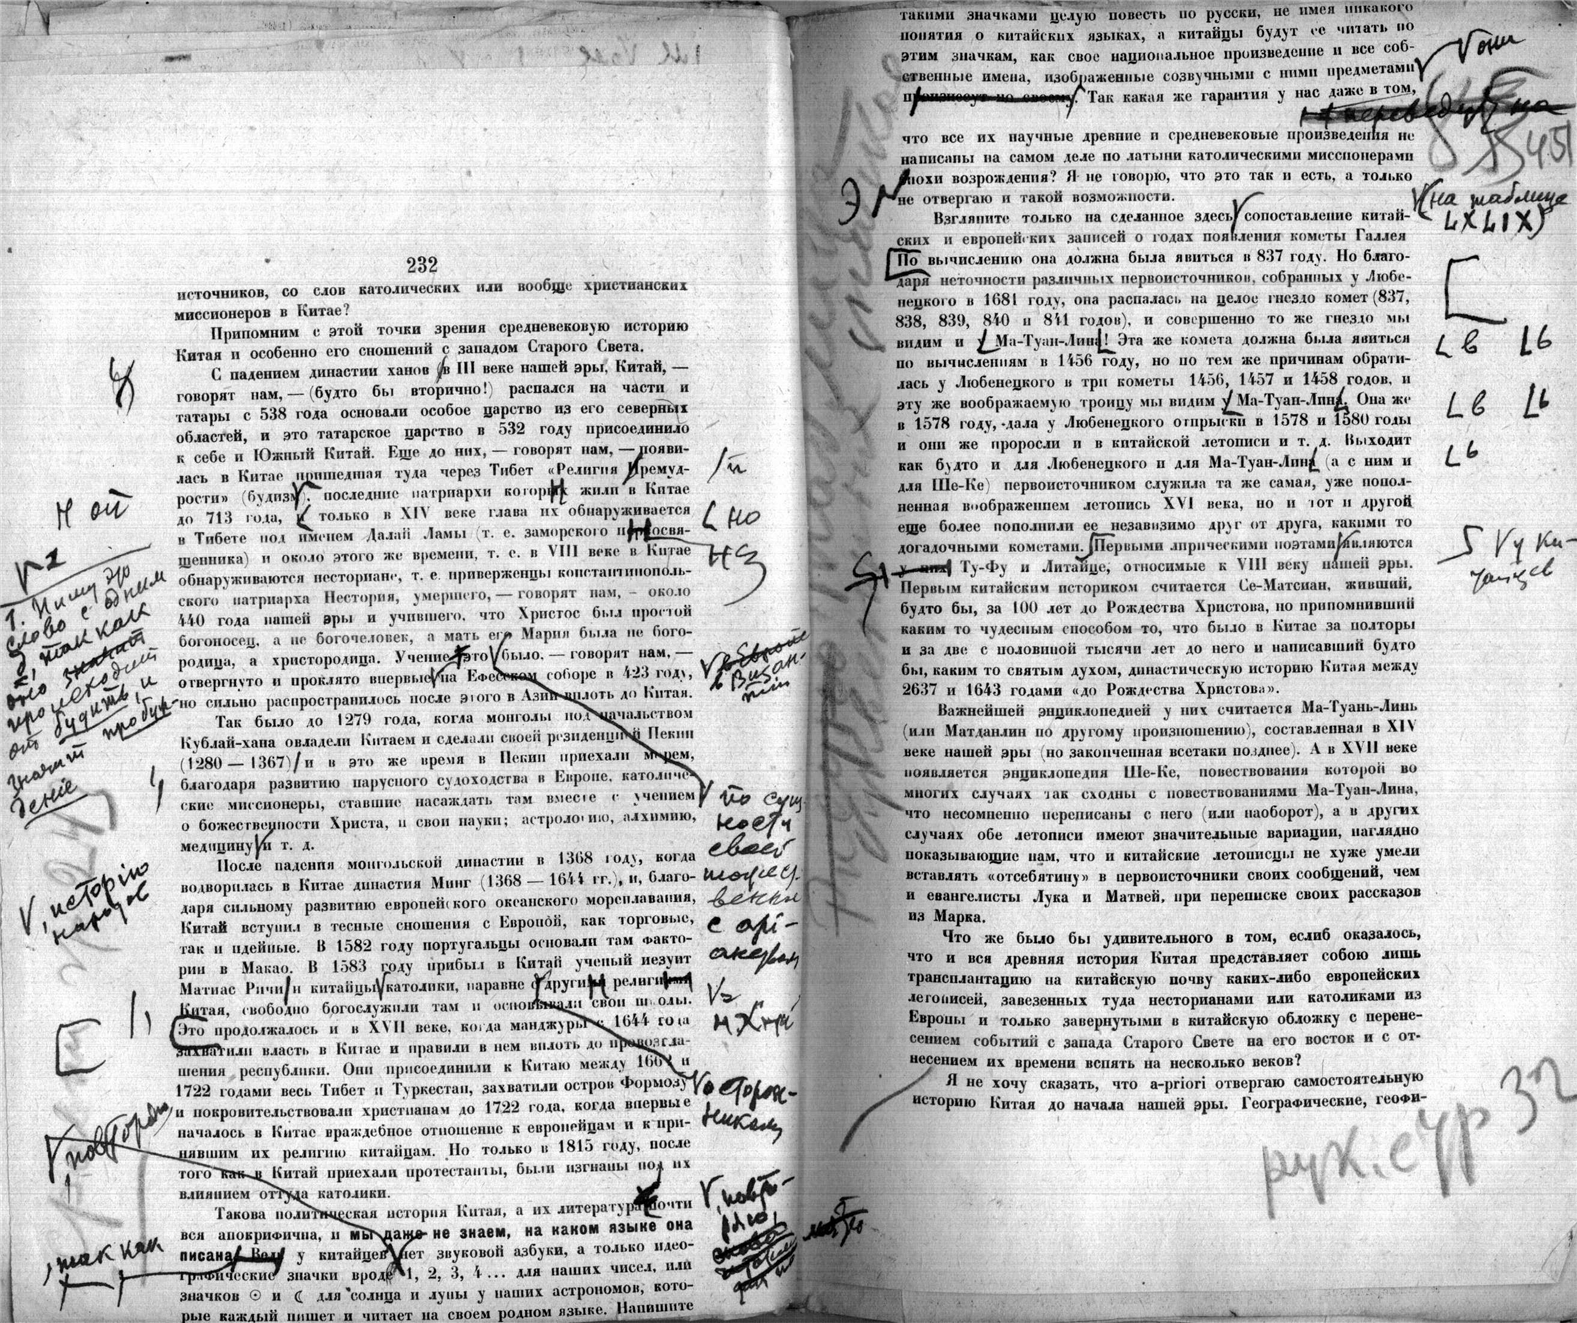 232
источников, со слов католических или вообще христианских
миссионеров в Китае?
Припомним с этой точки зрения средневековую историю
Китая и особенно его сношений с западом Старого Света.
С падением династии ханов в III веке нашей эры, Китай, —
говорят нам, — (будто бы вторично!) распался на части и
татары с 538 года основали особое царство из его северных
областей, и это татарское царство в 532 году присоединило
к себе и Южный Китай. Еще до них, — говорят нам, — появи-
лась в Китае пришедшая туда через Тибет «Религия Премуд-
рости» (будизм), последние патриархи которых жили в Китае
до 713 года, и только в XIV веке глава их обнаруживается
в Тибете под именем Далай Ламы (т. е. заморского первосвя-
щенника) и около этого же времени, т. е. в VIII веке в Китае
обнаруживаются несториане, т. е. приверженцы константинополь-
ского патриарха Нестория, умершего, — говорят нам, — около
440 года нашей эры и учившего, что Христос был простой
богоносец, а не богочеловек, а мать его Мария была не бого-
родица, а христородица. Учение это было, — говорят нам, —
отвергнуто и проклято впервые на Ефесском соборе в 423 году,
но сильно распространилось после этого в Азии вплоть до Китая.
Так было до 1279 года, когда монголы под начальством
Кублай-хана овладели Китаем и сделали своей резиденцией Пекин
(1280 — 1367) и в это же время в Пекин приехали морем,
благодаря развитию парусного судоходства в Европе, католиче-
ские миссионеры, ставшие насаждать там вместе с учением
о божественности Христа, и свои науки; астрологию, алхимию,
медицину и т. д.
После падения монгольской династии в 1368 году, когда
водворилась в Китае династия Минг (1368 — 1644 гг.), и, благо-
даря сильному развитию европейского океанского мореплавания,
Китай вступил в тесные сношения с Европой, как торговые,
так и идейные. В 1582 году португальцы основали там факто-
рии в Макао. В 1583 году прибыл в Китай ученый иезуит
Матиас Ричи и китайцы католики, наравне с другими религиями
Китая, свободно богослужили там и основывали свои школы.
Это продолжалось и в XVII веке, когда манджуры с 1644 года
захватили власть в Китае и правили в нем вплоть до провозгла-
шения республики. Они присоединили к Китаю между и
1722 годами весь Тибет и Туркестан, захватили остров Формозу
и покровительствовали христианам до 1722 года, когда впервые
началось в Китае враждебное отношение к европейцам и к при-
нявшим их религию китайцам. Но только в 1815 году, после
того как в Китай приехали протестанты, были изгнаны под их
влиянием оттуда католики.
Такова политическая история Китая, а их литература почти
вся апокрифична, и мы даже не знаем, на каком языке она
писана. Ведь у китайцев нет звуковой азбуки, а только идео-
графические значки вроде 1, 2, 3, 4 ... для наших чисел, или
значков ☉ и ☾ для солнца и луны у наших астрономов, кото-
рые каждый пишет и читает на своем родном языке. Напишите
Н ой
1. Пишу это
слово с одним
з, так как
оно
происходит
от будить, и
значит пробуж-
дение
V, историю
народов
V повторяю
, так как
/й
L но
НЗ
V в Европе
в Визан-
тии
V по сущ-
ности
своей
тождест-
венны
с арі-
анством
V сторон-
никам
V, повто-
ряю,
такими значками целую повесть по русски, не имея никакого
понятия о китайских языках, а китайцы будут ее читать по
этим значкам, как свое национальное произведение и все соб-
ственные имена, изображенные созвучными с ними предметами
произнесут по своему. Так какая же гарантия у нас даже в том,
что все их научные древние и средневековые произведения не
написаны на самом деле по латыни католическими миссионерами
эпохи возрождения? Я не говорю, что это так и есть, а только
не отвергаю и такой возможности.
Взгляните только на сделанное здесь сопоставление китай-
ских и европейских записей о годах появления кометы Галлея
По вычислению она должна была явиться в 837 году. Но благо-
даря неточности различных первоисточников, собранных у Любе-
нецкого в 1681 году, она распалась на целое гнездо комет (837,
838, 839, 840 и 841 годов), и совершенно то же гнездо мы
видим и у Ма-Туан-Лина! Эта же комета должна была явиться
по вычислениям в 1456 году, но по тем же причинам обрати-
лась у Любенецкого в три кометы 1456, 1457 и 1458 годов, и
эту же воображаемую троицу мы видим у Ма-Туан-Лина. Она же
в 1578 году, дала у Любенецкого отпрыски в 1578 и 1580 годы
и они же проросли и в китайской летописи и т. д. Выходит
как будто и для Любенецкого и для Ма-Туан-Лина (а с ним и
для Ше-Ке) первоисточником служила та же самая, уже попол-
ненная воображением летопись XVI века, но и тот и другой
еще более пополнили ее независимо друг от друга, какими то
догадочными кометами. Первыми лирическими поэтами являются
у них Ту-Фу и Литайпе, относимые к VIII веку нашей эры.
Первым китайским историком считается Се-Матсиан, живший,
будто бы, за 100 лет до Рождества Христова, но припомнивший
каким то чудесным способом то, что было в Китае за полторы
и за две с половиной тысячи лет до него и написавший будто
бы, каким то святым духом, династическую историю Китая между
2637 и 1643 годами «до Рождества Христова».
Важнейшей энциклопедией у них считается Ма-Туань-Линь
(или Матданлин по другому произношению), составленная в XIV
веке нашей эры (но законченная всетаки позднее). А в XVII веке
появляется энциклопедия Ше-Ке, повествования которой во
многих случаях так сходны с повествованиями Ма-Туан-Лина,
что несомненно переписаны с него (или наоборот), а в других
случаях обе летописи имеют значительные вариации, наглядно
показывающие нам, что и китайские летописцы не хуже умели
вставлять «отсебятину» в первоисточники своих сообщений, чем
и евангелисты Лука и Матвей, при переписке своих рассказов
из Марка.
Что же было бы удивительного в том, еслиб оказалось,
что и вся древняя история Китая представляет собою лишь
трансплантацию на китайскую почву каких-либо европейских
летописей, завезенных туда несторианами или католиками из
Европы и только завернутыми в китайскую обложку с перене-
сением событий с запада Старого Света на его восток и с от-
несением их времени вспять на несколько веков?
Я не хочу сказать, что a-priori отвергаю самостоятельную
историю Китая до начала нашей эры. Географические, геофи-
V они
переведут на
V(на таблице
LXLIX)
L в Lь
L в Lь
Lь
V у ки-
тайцев
рук. стр 32